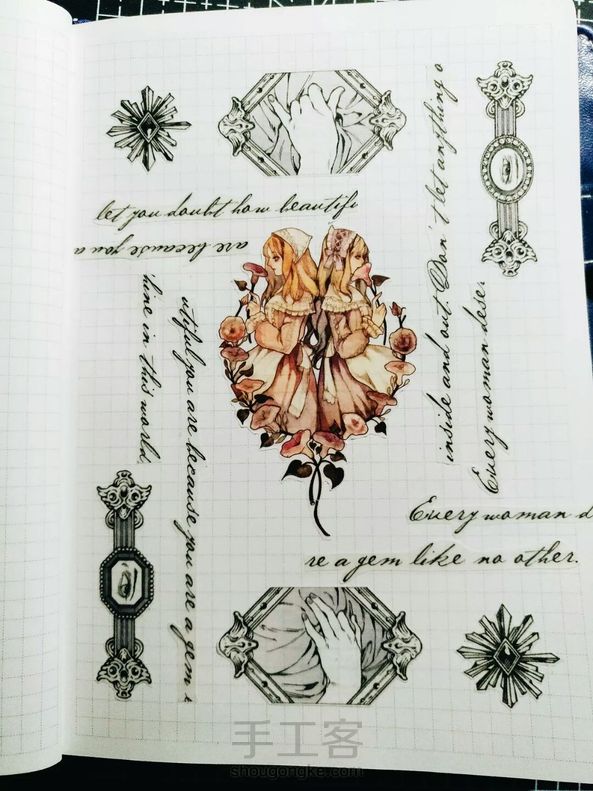 let you doubt how beautifu
are because you a
hine in this world.
utiful you are because you are a gem
inside and out. Don't let anything o
Every woman dese
Every woman d
re a gem like no other.
手工客
shougongke.com